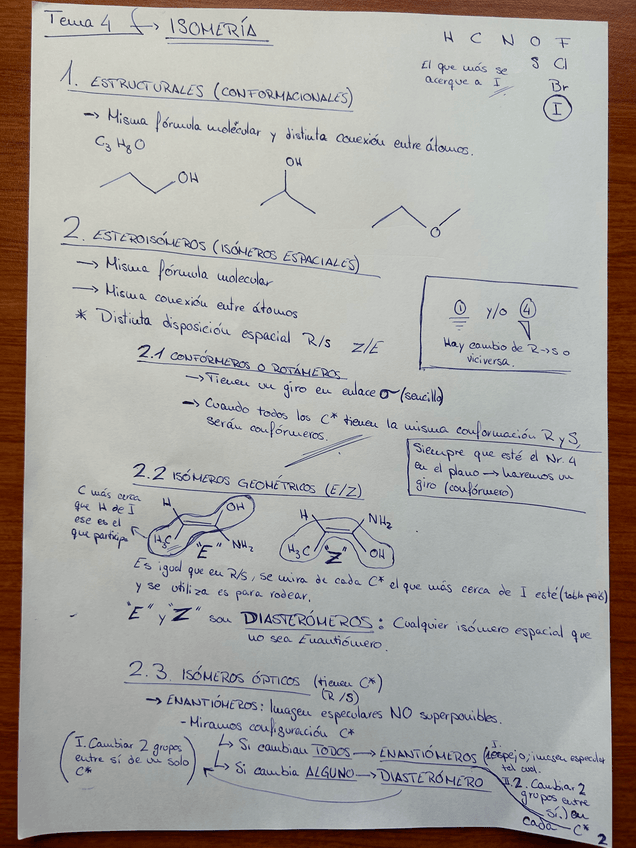 Tema 4 → ISOMERÍA
H C N O F
S Cl
Br
I
El que más se
acerque a I
1. ESTRUCTURALES (CONFORMACIONALES)
→ Misma fórmula molécular y distinta conexión entre átomos.
C3 H8 O
OH
OH
O
2. ESTEROISÓMEROS (ISÓMEROS ESPACIALES)
→ Misma fórmula molecular
→ Misma conexión entre átomos
* Distinta disposición espacial R/S Z/E
1 y/o 4
Hay cambio de R→S o
viciversa.
2.1 CONFÓRMEROS O ROTÁMEROS
→ Tienen un giro en enlace σ (sencillo)
→ Cuando todos los C* tienen la misma conformación R y S,
serán confórmeros.
Siempre que esté el Nr. 4
en el plano → haremos un
giro (confórmero)
2.2 ISÓMEROS GEOMÉTRICOS (E/Z)
C más cerca
que H de I
ese es el
que participa
H OH
H3C "E" NH2
H NH2
H3C "Z" OH
Es igual que en R/S, se mira de cada C* el que más cerca de I esté (tabla perió)
y se utiliza es para rodear.
"E" y "Z" son DIASTERÓMEROS: Cualquier isómero espacial que
no sea Enantiómero.
2.3. ISÓMEROS ÓPTICOS (tienen C*)
(R/S)
→ ENANTIÓMEROS: Imagen especulares NO superponibles.
- Miramos configuración C*
↳ Si cambian TODOS → ENANTIÓMEROS
↳ Si cambia ALGUNO → DIASTERÓMERO
(I. Cambiar 2 grupos
entre sí de un solo
C*)
I.
espejo; imagen especular
tal cual.
II. 2. Cambiar 2
grupos entre
sí.) en
cada C*
2